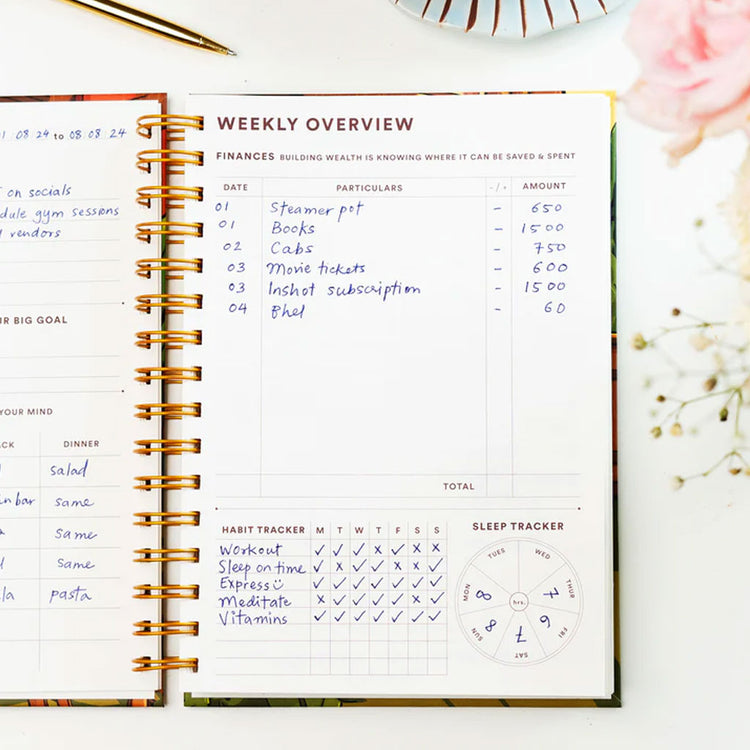 01 08 24 to 08 08 24
on socials
gym sessions
vendors
BIG GOAL
YOUR MIND
DINNER
salad
bar same
same
same
pasta
WEEKLY OVERVIEW
FINANCES BUILDING WEALTH IS KNOWING WHERE IT CAN BE SAVED & SPENT
DATE PARTICULARS -/+ AMOUNT
01 Steamer pot - 650
01 Books - 1500
02 Cabs - 750
03 Movie tickets - 600
03 Inshot subscription - 1500
04 Bhel - 60
TOTAL
HABIT TRACKER M T W T F S S
Workout ✓ ✓ ✓ x ✓ x x
Sleep on time ✓ x ✓ ✓ x x ✓
Express ☺ ✓ ✓ ✓ ✓ ✓ ✓ ✓
Meditate x ✓ ✓ ✓ ✓ x ✓
Vitamins ✓ ✓ ✓ ✓ ✓ ✓ ✓
SLEEP TRACKER
TUES WED
MON THUR
8 hrs. 7
8 7 6
SUN SAT FRI